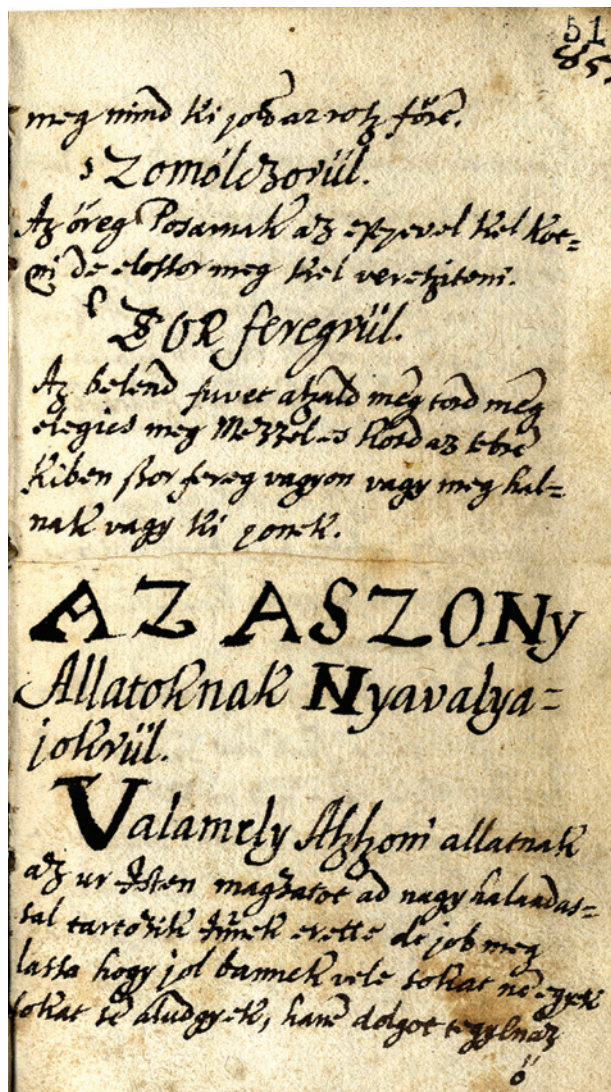 51
85
meg mind ki job az rotz főre.
Szomólczorül.
Az őreg Posamik az epjevel kel köt=
ni de elostor meg kel veretziteni.
SOR feregrül.
Az belend fuvet aszald meg tord meg
elegics meg Mezzel es kosd az sebre
kiben ssor fereg vagyon vagy meg hal=
nak vagy ki jonek.
AZ ASZONy
Allatoknak Nyavalya=
jokrül.
Valamely Aszszoni allatnak
az ur Isten magzatot ad nagy halaadas=
sal tartozik Istnek erette de job meg
lassa hogy jol bannek vele sokat ne egyek
sokat se aludgyek, hanē dolgot tegyen az
ő